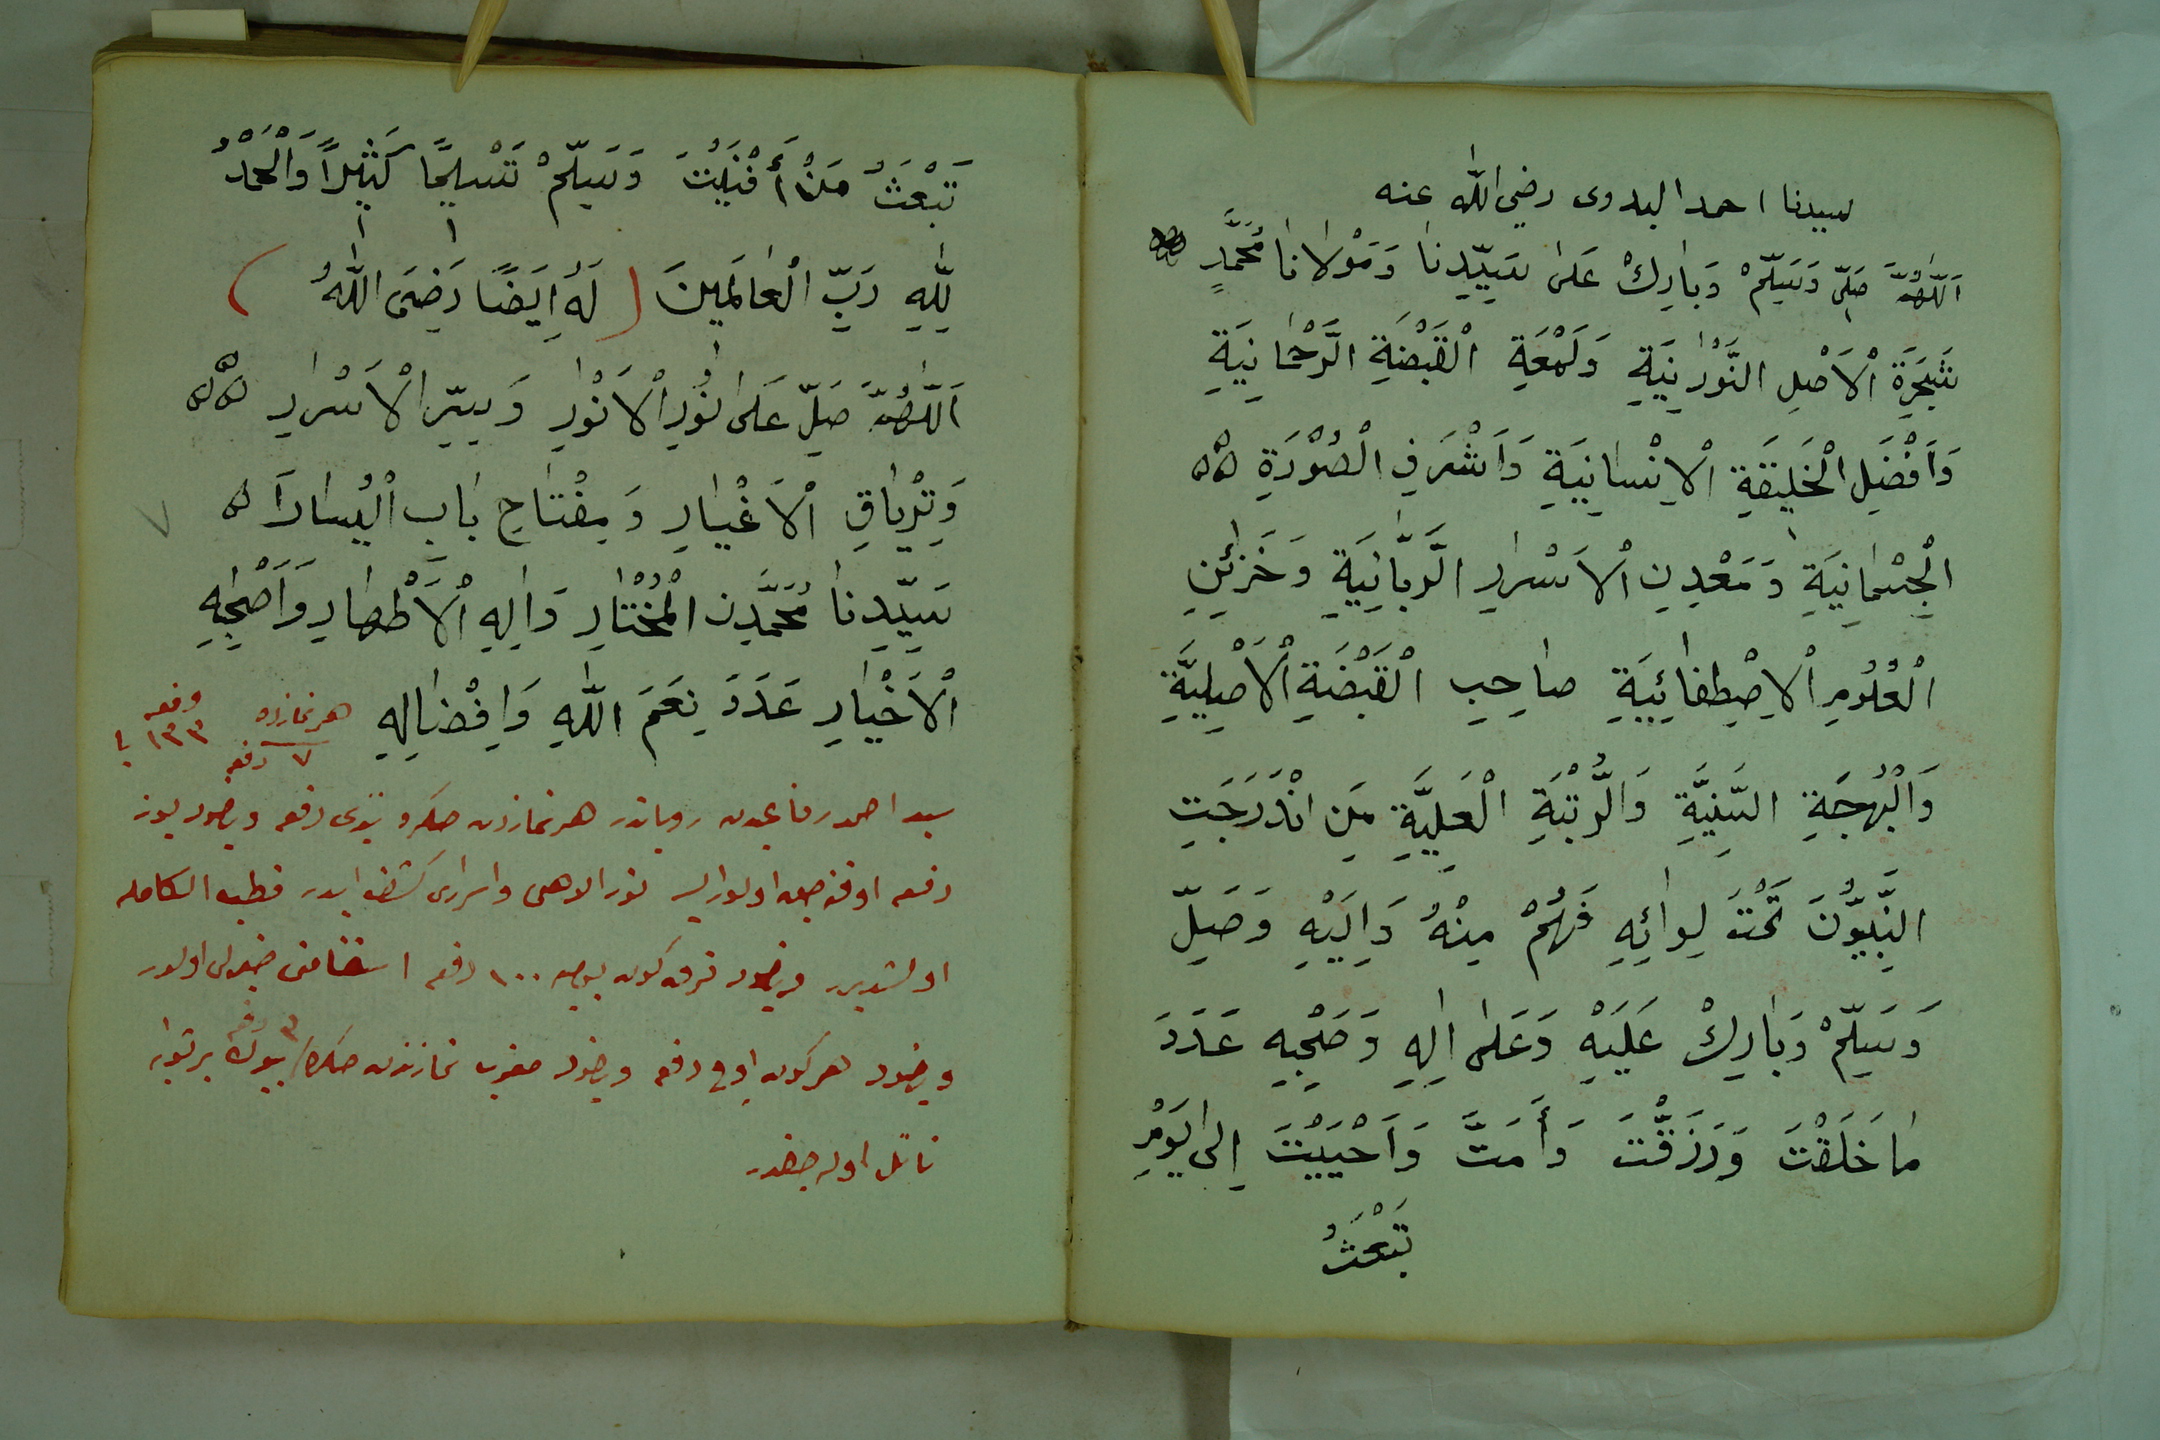 لسيدنا احمد البدوى رضي الله عنه
اَللّٰهُمَّ صَلِّ وَسَلِّمْ وَبَارِكْ عَلٰى سَيِّدِنَا وَمَوْلَانَا مُحَمَّدٍ
شَجَرَةِ الْاَصْلِ النُّوْرَانِيَّةِ وَلَمْعَةِ الْقَبْضَةِ الرَّحْمَانِيَّةِ
وَاَفْضَلِ الْخَلِيقَةِ الْاِنْسَانِيَّةِ وَاَشْرَفِ الصُّوْرَةِ
الْجِسْمَانِيَّةِ وَمَعْدِنِ الْاَسْرَارِ الرَّبَّانِيَّةِ وَخَزَائِنِ
الْعُلُومِ الْاِصْطِفَائِيَّةِ صَاحِبِ الْقَبْضَةِ الْاَصْلِيَّةِ
وَالْبَهْجَةِ السَّنِيَّةِ وَالرُّتْبَةِ الْعَلِيَّةِ مَنِ انْدَرَجَتِ
النَّبِيُّونَ تَحْتَ لِوَائِهِ فَهُمْ مِنْهُ وَاِلَيْهِ وَصَلِّ
وَسَلِّمْ وَبَارِكْ عَلَيْهِ وَعَلٰى اٰلِهِ وَصَحْبِهِ عَدَدَ
مَا خَلَقْتَ وَرَزَقْتَ وَأَمَتَّ وَاَحْيَيْتَ اِلٰى يَوْمِ
تَبْعَثُ
تَبْعَثُ مَنْ أَفْنَيْتَ وَسَلِّمْ تَسْلِيمًا كَثِيرًا وَالْحَمْدُ
لِلّٰهِ رَبِّ الْعَالَمِينَ ( لَهُ اَيْضًا رَضِىَ اللّٰهُ )
اَللّٰهُمَّ صَلِّ عَلٰى نُوْرِ الْاَنْوَارِ وَسِرِّ الْاَسْرَارِ
وَتِرْيَاقِ الْاَغْيَارِ وَمِفْتَاحِ بَابِ الْيَسَارِ
سَيِّدِنَا مُحَمَّدٍنِ الْمُخْتَارِ وَاٰلِهِ الْاَطْهَارِ وَاَصْحٰبِهِ
الْاَخْيَارِ عَدَدَ نِعَمَ اللّٰهِ وَاِفْضَالِهِ
هر نمازده
٧ دفعه
دفعه
١٣٣ يا
سيد احمد رفاعيدن روياتدر هر نمازدن صكره يدى دفعه وياخود يوز
دفعه اوقنه جق اولورايسه نور الاهى واسرارى كشف ايدر قطب الكامله
اولشديرر وياخود قرق كون يوميه ١٠٠ دفعه استقامتى ضولى اولور
وياخود هر كون اوچ دفعه وياخود مغرب نمازندن صكره ٣ دفعه بيوك بر ثوابه
نائل اوله جقدر